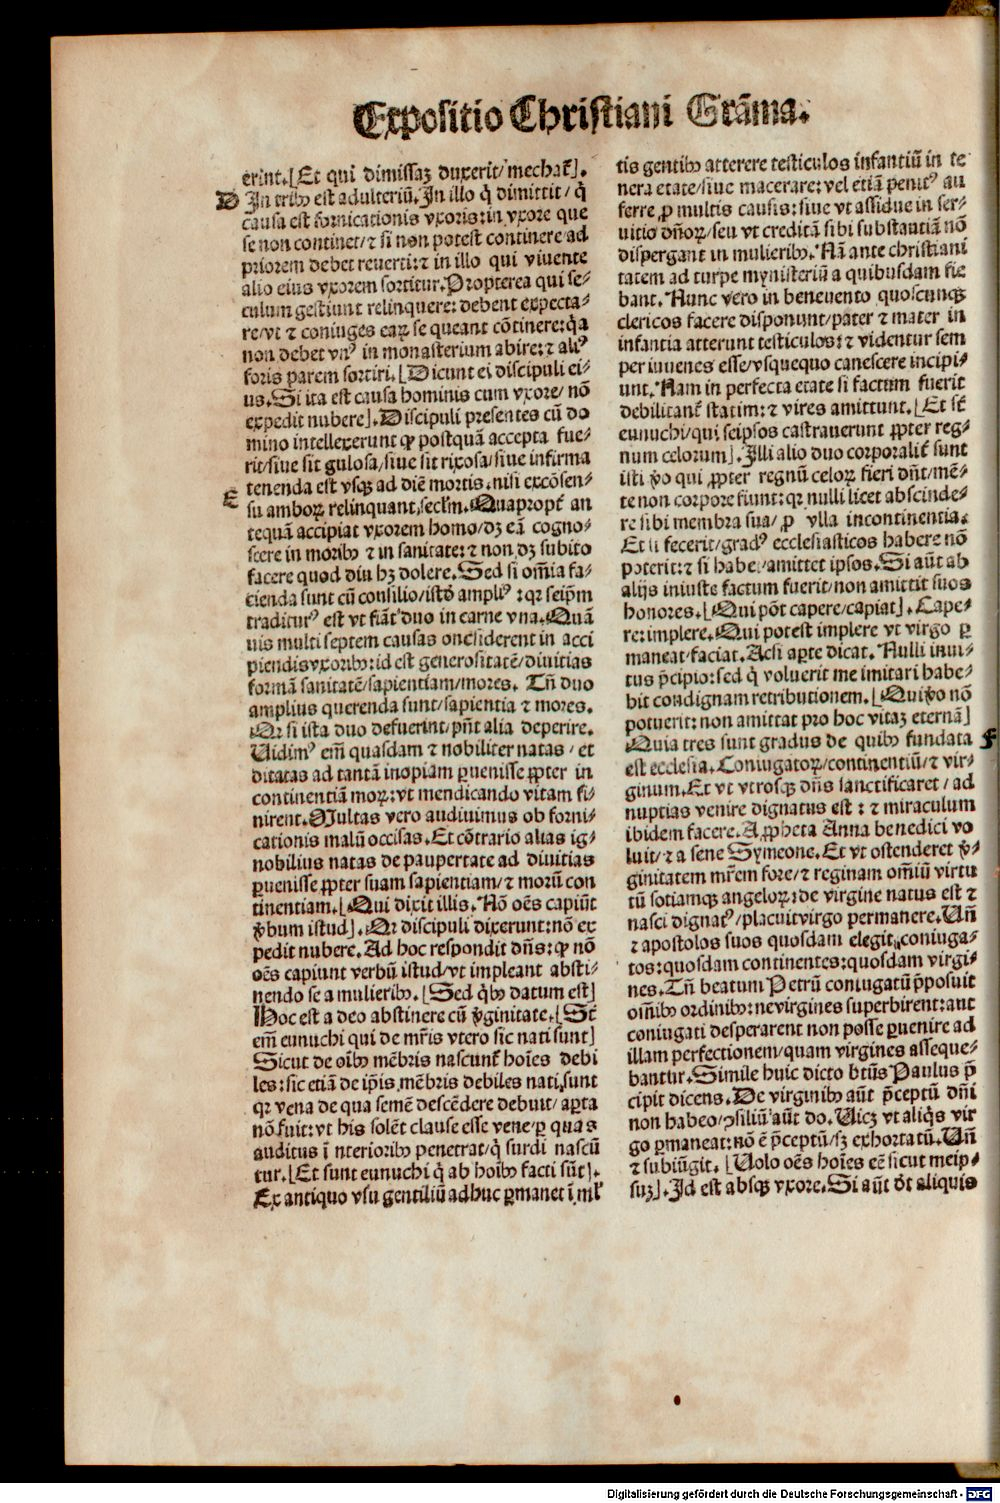 Expositio Christiani Grãma.
erint.[Et qui dimissaȝ duxerit/mechat̃].
D In tribꝰ est adulteriũ. In illo q̇ dimittit/q̇
causa est fornicationis vxoris: in vxore que
se non continet/⁊ si non potest continere ad
priorem debet reverti: ⁊ in illo qui vivente
alio eius vxorem sortitur. Propterea qui se⸗
culum gestiunt relinquere: debent expecta⸗
re/vt ⁊ coniuges earꝝ se queant cõtinere: q̃a
non debet vnꝰ in monasterium abire: ⁊ aliꝰ
foris parem sortiri. [Dicunt ei discipuli ei⸗
us. Si ita est causa hominis cum vxore/nõ
expedit nubere]. Discipuli presentes cũ do
mino intellexerunt ꝙ postquã accepta fue⸗
rit/siue sit gulosa/siue sit rixosa/siue infirma
tenenda est vsqꝫ ad diẽ mortis. nisi excõsen⸗
E su amborꝝ relinquant seclm̃. Quapropt̃ an
tequã accipiat vxorem homo/dꝫ eã cogno⸗
scere in moribꝰ ⁊ in sanitate: ⁊ non dꝫ subito
facere quod diu hꝫ dolere. Sed si om̃ia fa⸗
cienda sunt cũ consilio/istð ampliꝰ: qꝛ seip̃m
tradituꝝ est vt fiãt duo in carne vna. Quã
uis multi septem causas onesiderent in acci
piendis vxoribꝰ: id est generositatẽ/divitias
formã sanitatẽ/sapientiam/mores. Tñ duo
amplius querenda sunt/sapientia ⁊ mores.
Qꝛ si ista duo defuerint/pñt alia deperire.
Uidimꝰ em̃ quasdam ⁊ nobiliter natas/et
ditatas ad tantã inopiam ꝑuenisse ꝓpter in
continentiã morꝝ: vt mendicando vitam fi⸗
nirent. Multas vero audiuimus ob forni⸗
cationis malũ occisas. Et cõtrario alias ig⸗
nobilius natas de paupertate ad divitias
ꝑuenisse ꝓpter suam sapientiam/⁊ morũ con
tinentiam. [Qui dixit illis. Nõ oẽs capiũt
v̾bum istud]. Qꝛ discipuli dixerunt: nõ ex
pedit nubere. Ad hoc respondit dñs: ꝙ nõ
oẽs capiunt verbũ istud/vt impleant absti⸗
nendo se a mulieribꝰ. [Sed q̇bꝰ datum est]
Hoc est a deo abstinere cũ v̾ginitate. [St̃
em̃ eunuchi qui de mr̃is vtero sic nati sunt]
Sicut de oĩbꝰ mẽbris nascunt̃ hoĩes debi
les: sic etiã de ip̃is mẽbris debiles nati sunt
qꝛ vena de qua semẽ descẽdere debuit/aꝑta
nõ fuit: vt his solẽt clause esse vene/ꝑ quas
auditus ĩ nterioribꝰ penetrat/q̇ surdi nascũ
tur. [Et sunt eunuchi q̇ ab hoĩbꝰ facti sũt].
Ex antiquo vsu gentiliũ adhuc ꝑmanet ĩ ml̾
tis gentibꝰ atterere testiculos infantiũ in te
nera etate/siue macerare: vel etiã penitꝰ au
ferre ꝓ multis causis: siue vt assidue in ser⸗
uitio dñorꝝ/seu vt creditã sibi substantiã nõ
dispergant in mulieribꝰ. Nã ante christiani
tatem ad turpe mynisteriũ a quibusdam fie
bant. Nunc vero in beneuento quoscunqꝫ
clericos facere disponunt/pater ⁊ mater in
infantia atterunt testiculos: ⁊ videntur sem
per iuuenes esse/vsquequo canescere incipi⸗
unt. Nam in perfecta etate si factum fuerit
debilitant̃ statim: ⁊ vires amittunt. [Et st̃
eunuchi/qui seipsos castrauerunt ꝓpter reg⸗
num celorum]. Illi alio duo corporalit̃ sunt
isti v̾o qui ꝓpter regnũ celorꝝ fieri dñt/mẽ⸗
te non corpore fiunt: qꝛ nulli licet abscinde⸗
re sibi membra sua/ꝓ vlla incontinentia.
Et si fecerit/gradꝰ ecclesiasticos habere nõ
poterit: ⁊ si habet/amittet ipsos. Si aũt ab
alijs iniuste factum fuerit/non amittit suos
honores. [Qui põt capere/capiat]. Cape⸗
re: implere. Qui potest implere vt virgo ꝑ
maneat/faciat. Acsi aꝑte dicat. Nulli inui⸗
tus p̃cipio: sed q̇ voluerit me imitari habe⸗
bit condignam retributionem. [Qui v̾o nõ
potuerit: non amittat pro hoc vitaȝ eternã]
Quia tres sunt gradus de quibꝰ fundata F
est ecclesia. Coniugatorꝝ/continentiũ/⁊ vir⸗
ginum. Et vt vtrosqꝫ dñs sanctificaret/ad
nuptias venire dignatus est: ⁊ miraculum
ibidem facere. A ꝓpheta Anna benedici vo
luit/⁊ a sene Symeone. Et vt ostenderet v̾⸗
ginitatem mr̃em fore/⁊ reginam om̃iũ virtu
tũ sotiamqꝫ angelorꝝ: de virgine natus est ⁊
nasci dignatꝰ/placuit virgo permanere. Uñ
⁊ apostolos suos quosdam elegit coniuga⸗
tos: quosdam continentes: quosdam virgi⸗
nes. Tñ beatum Petrũ coniugatũ p̃posuit
oĩbus ordinibꝰ: ne virgines superbirent: aut
coniugati desperarent non posse ꝑuenire ad
illam perfectionem/quam virgines asseque⸗
bantur. Simile huic dicto bt̃us Paulus p̃
cipit dicens. De virginibꝰ aũt p̃ceptũ dñi
non habeo/ꝯsiliũ aũt do. Uicꝫ vt aliq̇s vir
go ꝑmaneat: nõ ẽ p̃ceptũ/sꝫ exhortatũ. Uñ
⁊ subiũgit. [Uolo oẽs hoĩes eẽ sicut meip⸗
suȝ]. Id est absqꝫ vxore. Si aũt ðt aliquis
Digitalisierung gefördert durch die Deutsche Forschungsgemeinschaft - DFG